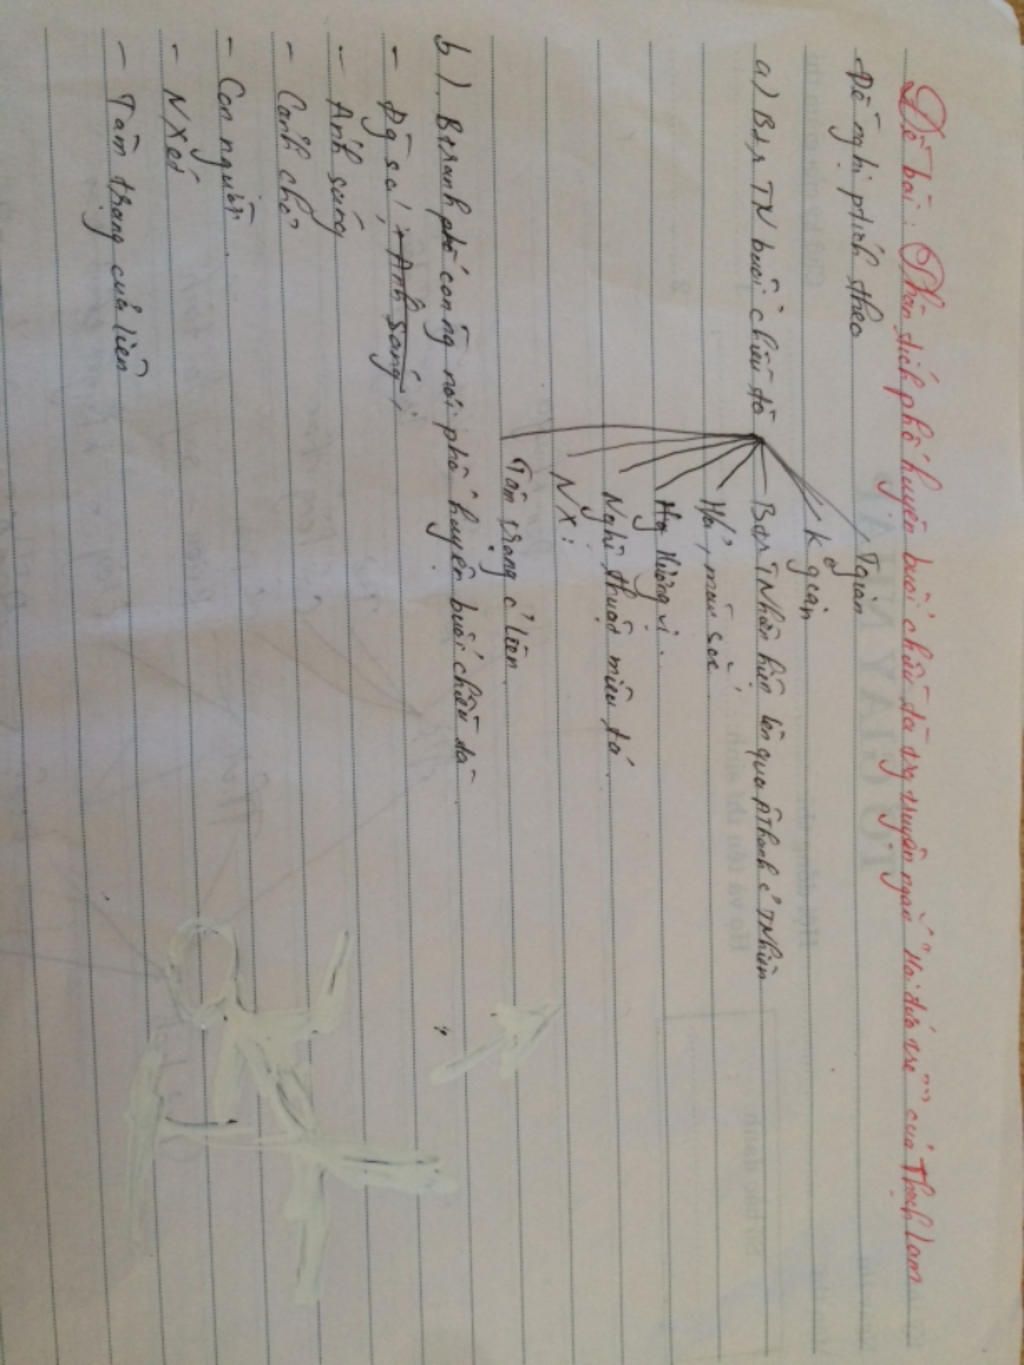 Đề bài: Phân tích phố huyện buổi chiều tà trg truyện ngắn "Hai đứa trẻ" của Thạch Lam
Đề nghị ptích theo
Tgian
k gian
a) Btr TN buổi chiều tà
Btr TNhiên hiện lên qua âThanh c' TNhiên
H/ả, màu sắc
Hương vị.
Nghệ thuật miêu tả.
NX:
Tâm trạng c' Liên.
b.) Bctranh phố con ng nơi phố huyện buổi chiều tà.
- Đg sá,
- Ánh sáng
- Cảnh chợ
- Con người.
- NXét
- Tâm trạng của liên